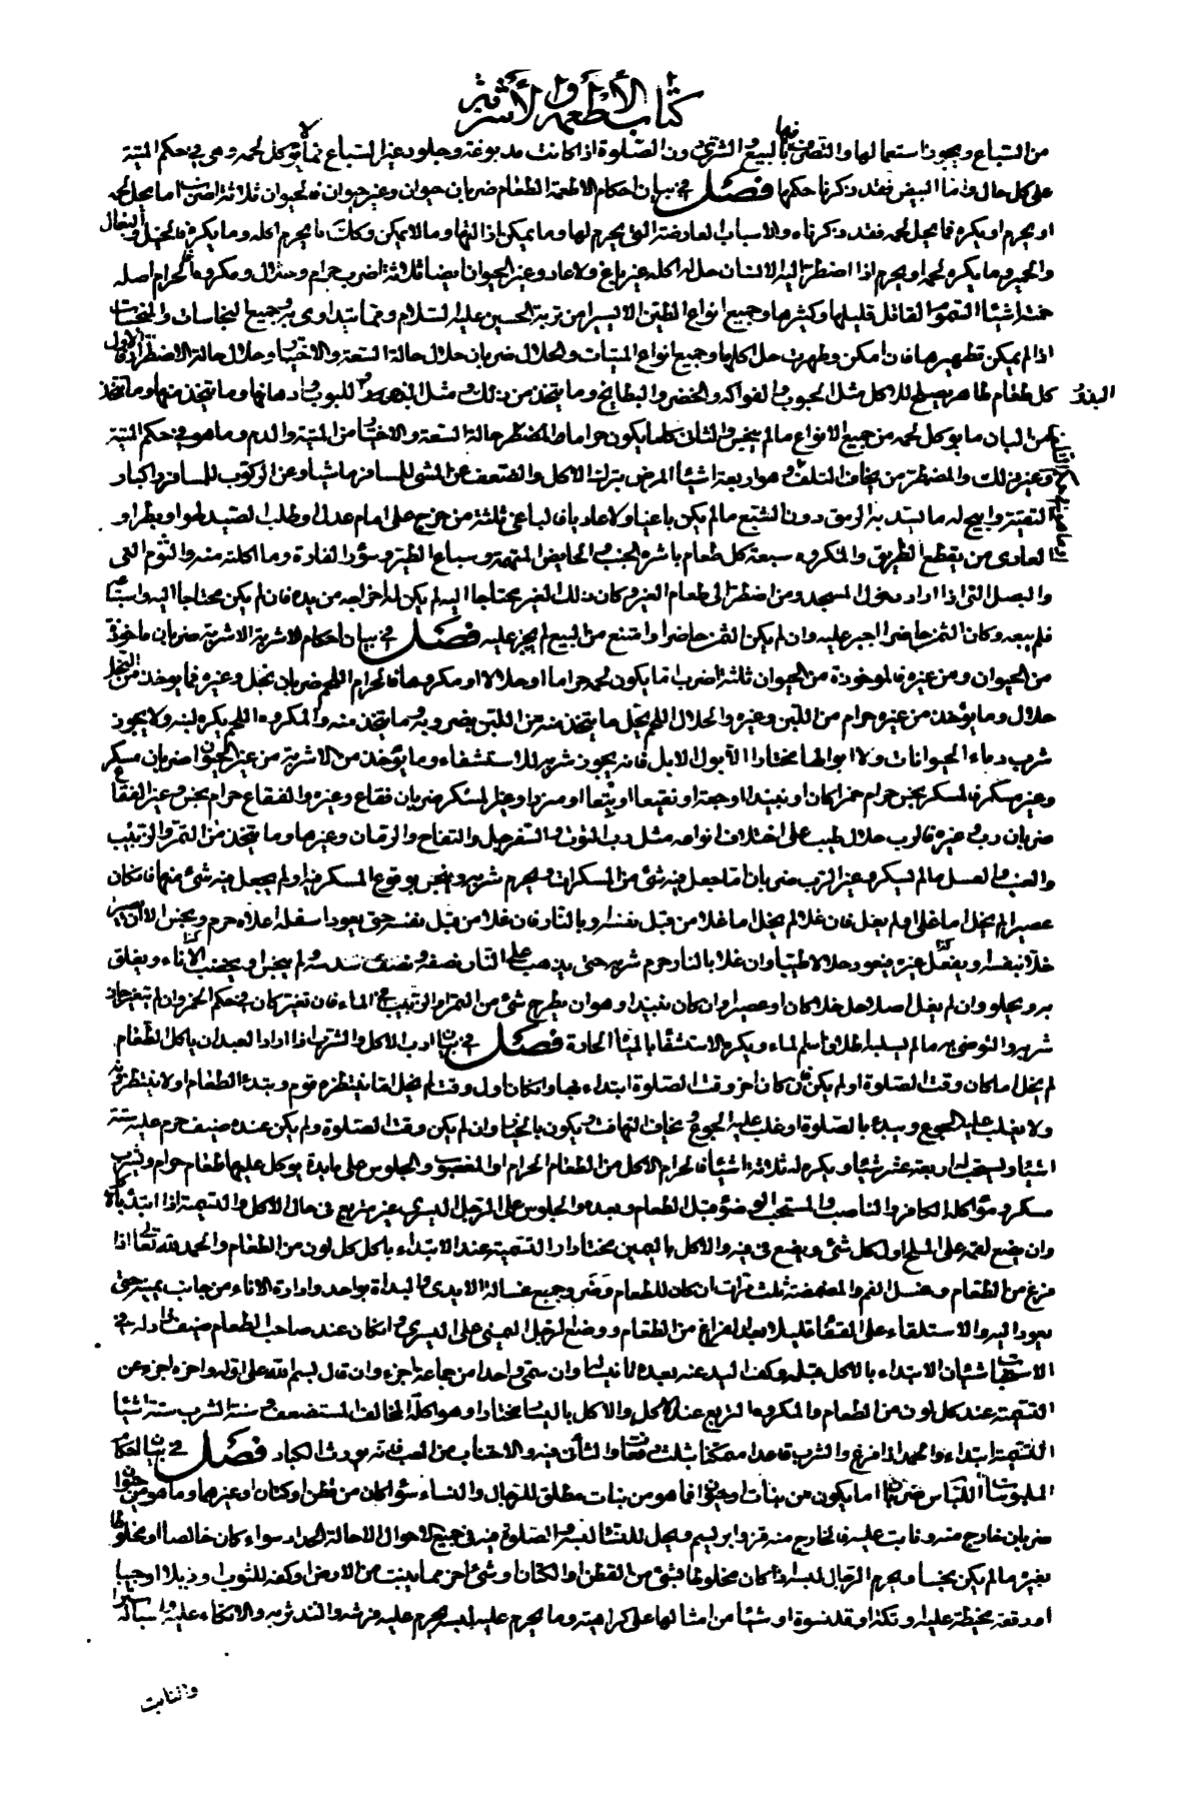 كتاب الأطعمة والأشربة
من السباع ويجوز استعمالها والتصرف فيها بالبيع والشرى دون الصلوة اذا كانت مدبوغة وجلود غير السباع مما لا يؤكل لحمه وهى في حكم الميتة
على كل حال واما البيض فقد ذكرنا حكمها فصل في بيان احكام الاطعمة الطعام ضربان حيوان وغير حيوان فالحيوان ثلاثة اضرب اما يحل لحمه
او يحرم او يكره فما يحل لحمه فقد ذكرناه والاسباب العارضة التى يحرم لها وما يمكن ازالتها وما لا يمكن وكذلك ما يحرم اكله وما يكره فالخيل والبغال
والحمير وما يكره لحمه او يحرم اذا اضطر اليه الانسان حل له اكله غير باغ ولا عاد وغير الحيوان ايضا ثلاثة اضرب حرام وحلال ومكروه فالحرام اصله
خمسة اشياء السموم القاتل قليلها وكثيرها وجميع انواع الطين الا اليسير من تربة الحسين عليه السلام ومما يتداوى به وجميع النجاسات والمنجسات
اذا لم يمكن تطهيرها فان امكن وطهرت حل اكلها وجميع انواع الميتات والحلال ضربان حلال حالة السعة والاختيار وحلال حالة الاضطرار فالاول
كل طعام طاهر يصلح للاكل مثل الحبوب والفواكه والخضر والبطايخ وما يتخذ من ذلك ومثل البذور واللبوب وادهانها وما يتخذ منها وما يتخذ
البذور
من البان ما يؤكل لحمه من جميع الانواع ما لم ينجس والثانى كلما يكون حراما والمضطر حالة السعة والاختيار من الميتة والدم وما هو في حكم الميتة
وغير ذلك والمضطر من يخاف التلف وهو اربعة اشياء المرض بترك الاكل والضعف عن المشى للمسافر ماشيا وعن الركوب للمسافر راكبا و
التقية وابيح له ما يسد به الرمق دون الشبع ما لم يكن باغيا ولا عاديا فالباغى ثلثة من خرج على امام عدل او طلب الصيد لهوا وبطرا و
العادى من يقطع الطريق والمكروه سبعة كل طعام باشره الجنب والحايض المتهمة وسباع الطير وسؤر الفارة وما اكلته منه والثوم التى
والبصل التى اذا اراد دخول المسجد ومن اضطر الى طعام الغير وكان ذلك الغير محتاجا اليه لم يكن له اخراجه من يده فان لم يكن محتاجا اليه واستباعه
فلم يبعه وكان الثمن حاضرا اجبر عليه وان لم يكن الثمن حاضرا وامتنع من البيع لم يجبر عليه فصل في بيان احكام الاشربة الاشربة ضربان ماخوذة
من الحيوان ومن غيره فالماخوذة من الحيوان ثلثة اضرب ما يكون لحمه حراما او حلالا او مكروها فالحرام اللحم ضربان نحل وغيره فما يوخذ من النحل
حلال وما يؤخذ من غيره حرام من اللبن وغيره والحلال اللحم يحل ما يتخذ منه من اللبن بضروبه وما يتخذ منه والمكروه اللحم يكره لبنه ولا يجوز
شرب دماء الحيوانات ولا ابوالها مختارا الا بول الابل فانه يجوز شربه للاستشفاء وما يؤخذ من الاشربة من غير الحيوان ضربان مسكر
وغير مسكر فالمسكر نجس حرام خمرا كان او نبيذا او جعة او نقيعا او بتعا او مزرا وغير المسكر ضربان فقاع وغيره والفقاع حرام نجس وغير الفقاع
ضربان رب وغيره فالرب حلال طيب على اختلاف انواعه مثل رب التوت والسفرجل والتفاح والرمان وغيرها وما يتخذ من التمر والزبيب
والعنب والعسل ما لم يسكر وغير الرب ضربان اما جعل فيه شئ من المسكرات فيحرم شربه وينجس بوقوع المسكر فيه او لم يجعل فيه شئ منها فان كان
عصيرا لم يخل اما غلى او لم يغل فان غلا لم يخل اما غلا من قبل نفسه او بالنار فان غلا من قبل نفسه حتى يعود اسفله اعلاه حرم ونجس الا ان يصير
خلا بنفسه او بفعل غيره فيعود حلالا طيبا وان غلا بالنار حرم شربه حتى يذهب على النار نصفه ونصف سدسه ولم ينجس او يخضب الاناء ويعلق
به ويحلو وان لم يغل اصلا حل خلا كان او عصيرا وان كان نبيذا وهو ان يطرح شئ من التمر او الزبيب في الماء فان تغير كان في حكم الخمر وان لم يتغير جاز
شربه والتوضى به ما لم يسلبه اطلاق اسم الماء ويكره الاستشفاء بالمياه الحارة فصل في بيان ادب الاكل والشرب اذا اراد العبد ان ياكل الطعام
لم يخل اما كان وقت الصلوة او لم يكن فان كان اخر وقت الصلوة ابتداء بها وان كان اول وقت لم يخل اما ينتظره قوم ويبتدئ الطعام او لا ينتظرونه
ولا يغلب عليه الجوع ويبدء بالصلوة او غلب عليه الجوع ويخاف التهافت فيكون بالخيار وان لم يكن وقت الصلوة ولم يكن عنده ضيف حرم عليه ستة
اشياء ويستحب له اربعة عشر شيئا ويكره له ثلاثة اشياء فالحرام الاكل من الطعام الحرام او المغصوب والجلوس على مايدة يوكل عليها طعام حرام ويشرب
مسكر ومؤاكلة الكافر والناصب والمستحب الوضؤ قبل الطعام وبعده والجلوس على الرجل اليسرى غير متربع في حال الاكل والتسمية اذا ابتدء بالاكل
وان يضع لقمه على الملح اول كل شئ ويضع في فيه والاكل باليمين مختارا والتسمية عند الابتداء باكل كل لون من الطعام والحمد لله تعالى اذا
فرغ من الطعام وغسل الفم والمضمضة ثلث مرات ان كان للطعام وضر وجميع غسالة الايدى والبداة بواحد وادارة الاناء من جانب يمينه حتى
يعود اليه والاستلقاء على القفاء قليلا بعد الفراغ من الطعام ووضع الرجل اليمنى على اليسرى وان كان عند صاحب الطعام ضيف زاد له في
الاستحباب شيئان الابتداء بالاكل قبله وكف اليد عنه بعده تانيسا وان سمى واحد من جماعة اجزء وان قال بسم الله على اوله واخره اجزء عن
التسمية عند كل لون من الطعام والمكروه التربع عند الاكل والاكل باليسار مختارا ومواكلة المخالف المستضعف وسنة الشرب ستة اشياء
التسمية ابتداء والحمد اذا فرغ والشرب قاعدا ممكنا بثلث دفعات والتانى فيه والاجتناب من العب فانه يورث الكباد فصل في بيان احكام
الملبوسات اللباس ضربان اما يكون من نبات او حيوان فما هو من نبات مطلق للرجال والنساء سواء كان من قطن او كتان او غيرهما وما هو من حيوان
ضربان خارج منه ونابت عليه فالخارج منه قز وابريسم ويحل للنساء لبسه والصلوة فيه في جميع الاحوال الا حالة الحداد سواء كان خالصا او مخلوطا
بغيره ما لم يكن نجسا ويحرم الرجال لبسه اذا كان مخلوطا بشئ من القطن والكتان او شئ اخر مما ينبت من الارض وكفه للثوب او ذيلا او جيبا
او رقعة مخيطة عليه او تكة او قلنسوة او شيئا من امثالها على كراهية وما يحرم عليه لبسه يحرم عليه فرشه والتدثر به والاتكاء عليه واسباله سترا
والنابت